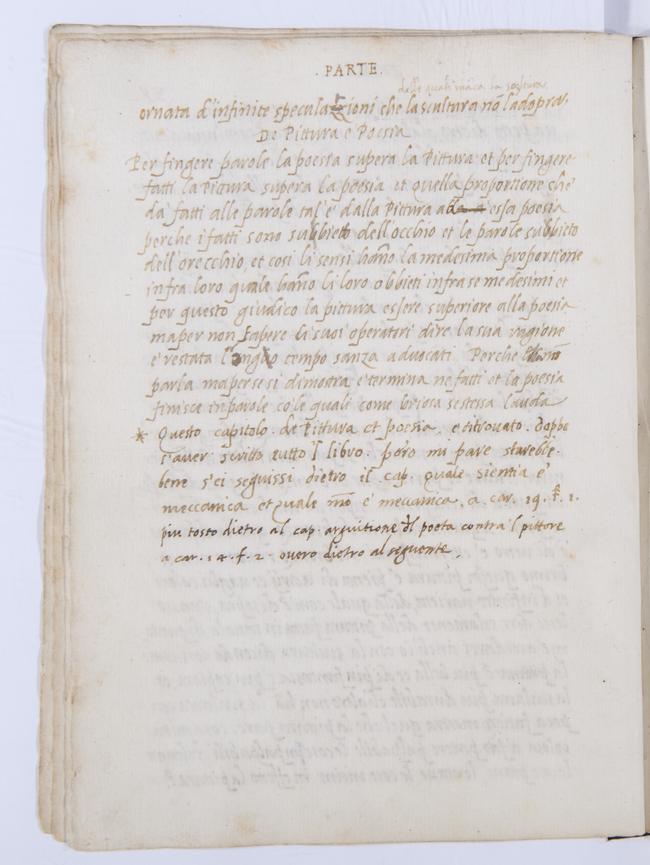 . PARTE .
delle quali māca la scultura.
ornata d'infinite speculazioni che la scultura nō l'adopra.
De Pittura e Poesia
Per fingere parole la poesia supera la Pittura et per fingere
fatti la Pittura supera la poesia et quella proportione che
da fatti alle parole tal'è dalla Pittura a essa poesia
perche i fatti sono subbietto dell'occhio et le parole subbieto
dell'orecchio, et cosi li sensi hāno la medesima proportione
infra loro quale hāno li loro obbieti infra se medesimi et
per questo giudico la pittura essere superiore alla poesia
ma per non sapere li suoi operatori dire la sua ragione
è restata longo tempo sanza advocati Perche
parla ma per se si dimostra e termina ne fatti et la poesia
finisce in parole co le quali come briosa se stessa lauda
* Questo capitolo . de Pittura et poesia . e ritrouato . doppo
l'aver scritto tutto l libro . però mi pare starebbe .
bene s'ei seguissi dietro il cap . quale sientia è
meccanica et quale nō è meccanica . a . car . 19 . f . 1 .
piu tosto dietro al cap . arguitione dl poeta contra 'l pittore
a car . 14 . f . 2 . overo dietro al seguente .